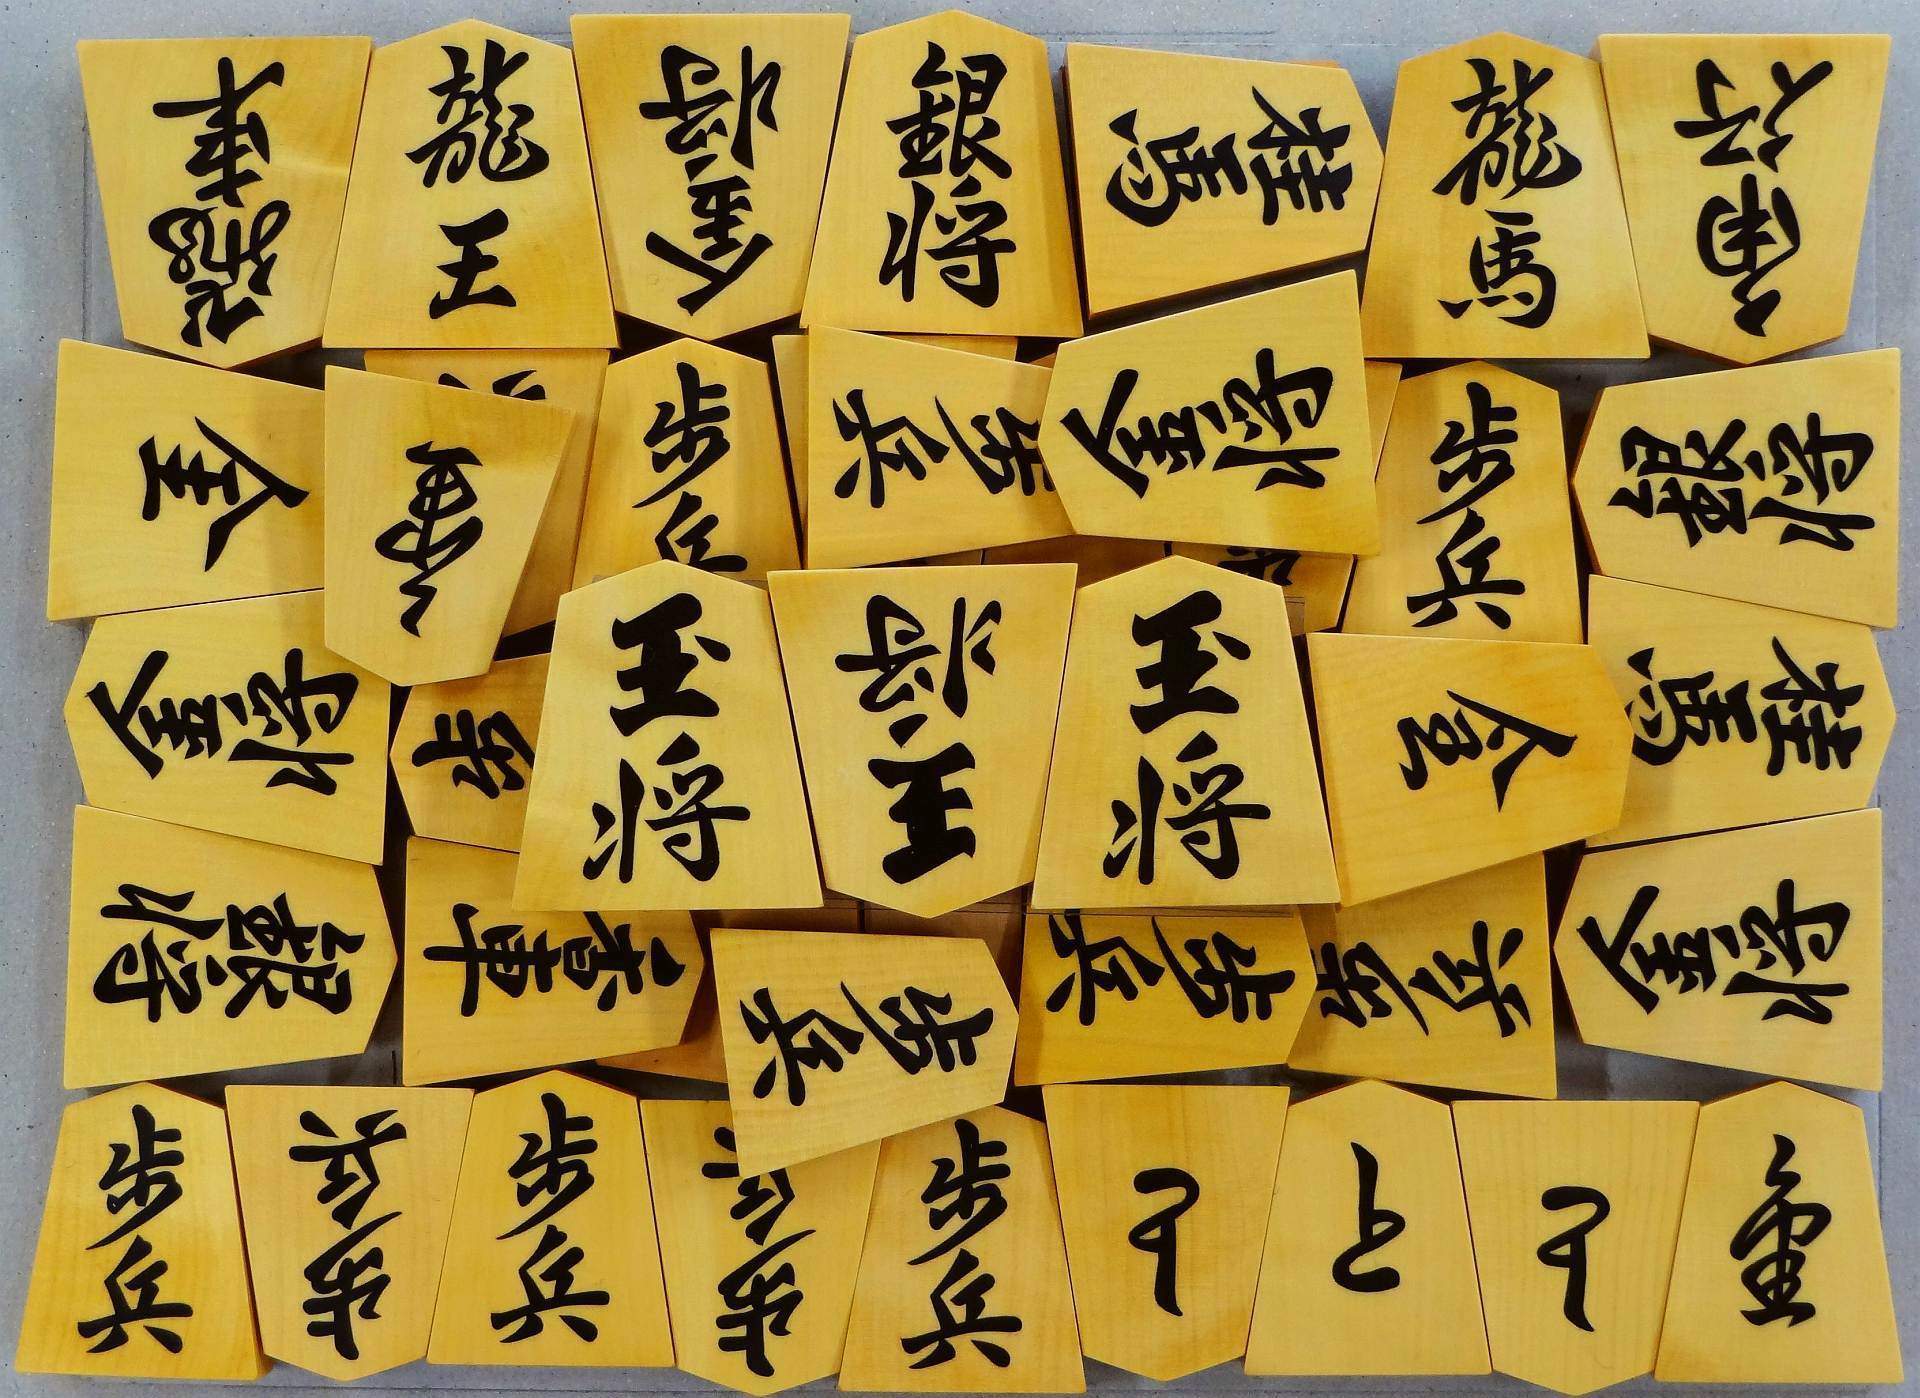 飛車
龍王
金将
銀将
桂馬
龍馬
角行
歩兵
歩兵
金将
歩兵
銀将
金将
玉将
王将
玉将
桂馬
銀将
香車
歩兵
歩兵
金将
歩兵
歩兵
歩兵
歩兵
歩兵
と
と
と